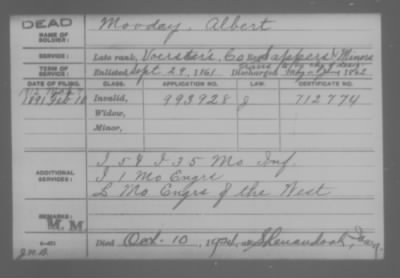 DEAD
NAME OF SOLDIER:
Mooday, Albert
SERVICE:
Late rank, Voerster's Co Sappers & Miners
TERM OF SERVICE:
Enlisted Sept. 29, 1861 Discharged 1862
DATE OF FILING. CLASS. APPLICATION NO. LAW. CERTIFICATE NO.
1891 Feb 10 Invalid, 993928 J 712774
Widow,
Minor,
ADDITIONAL SERVICES:
I 5 & I 35 Mo Inf
I 1 Mo Engrs
L Mo Engrs of the West
REMARKS:
M. M.
Died Oct. 10, at Shenandoah, Iowa